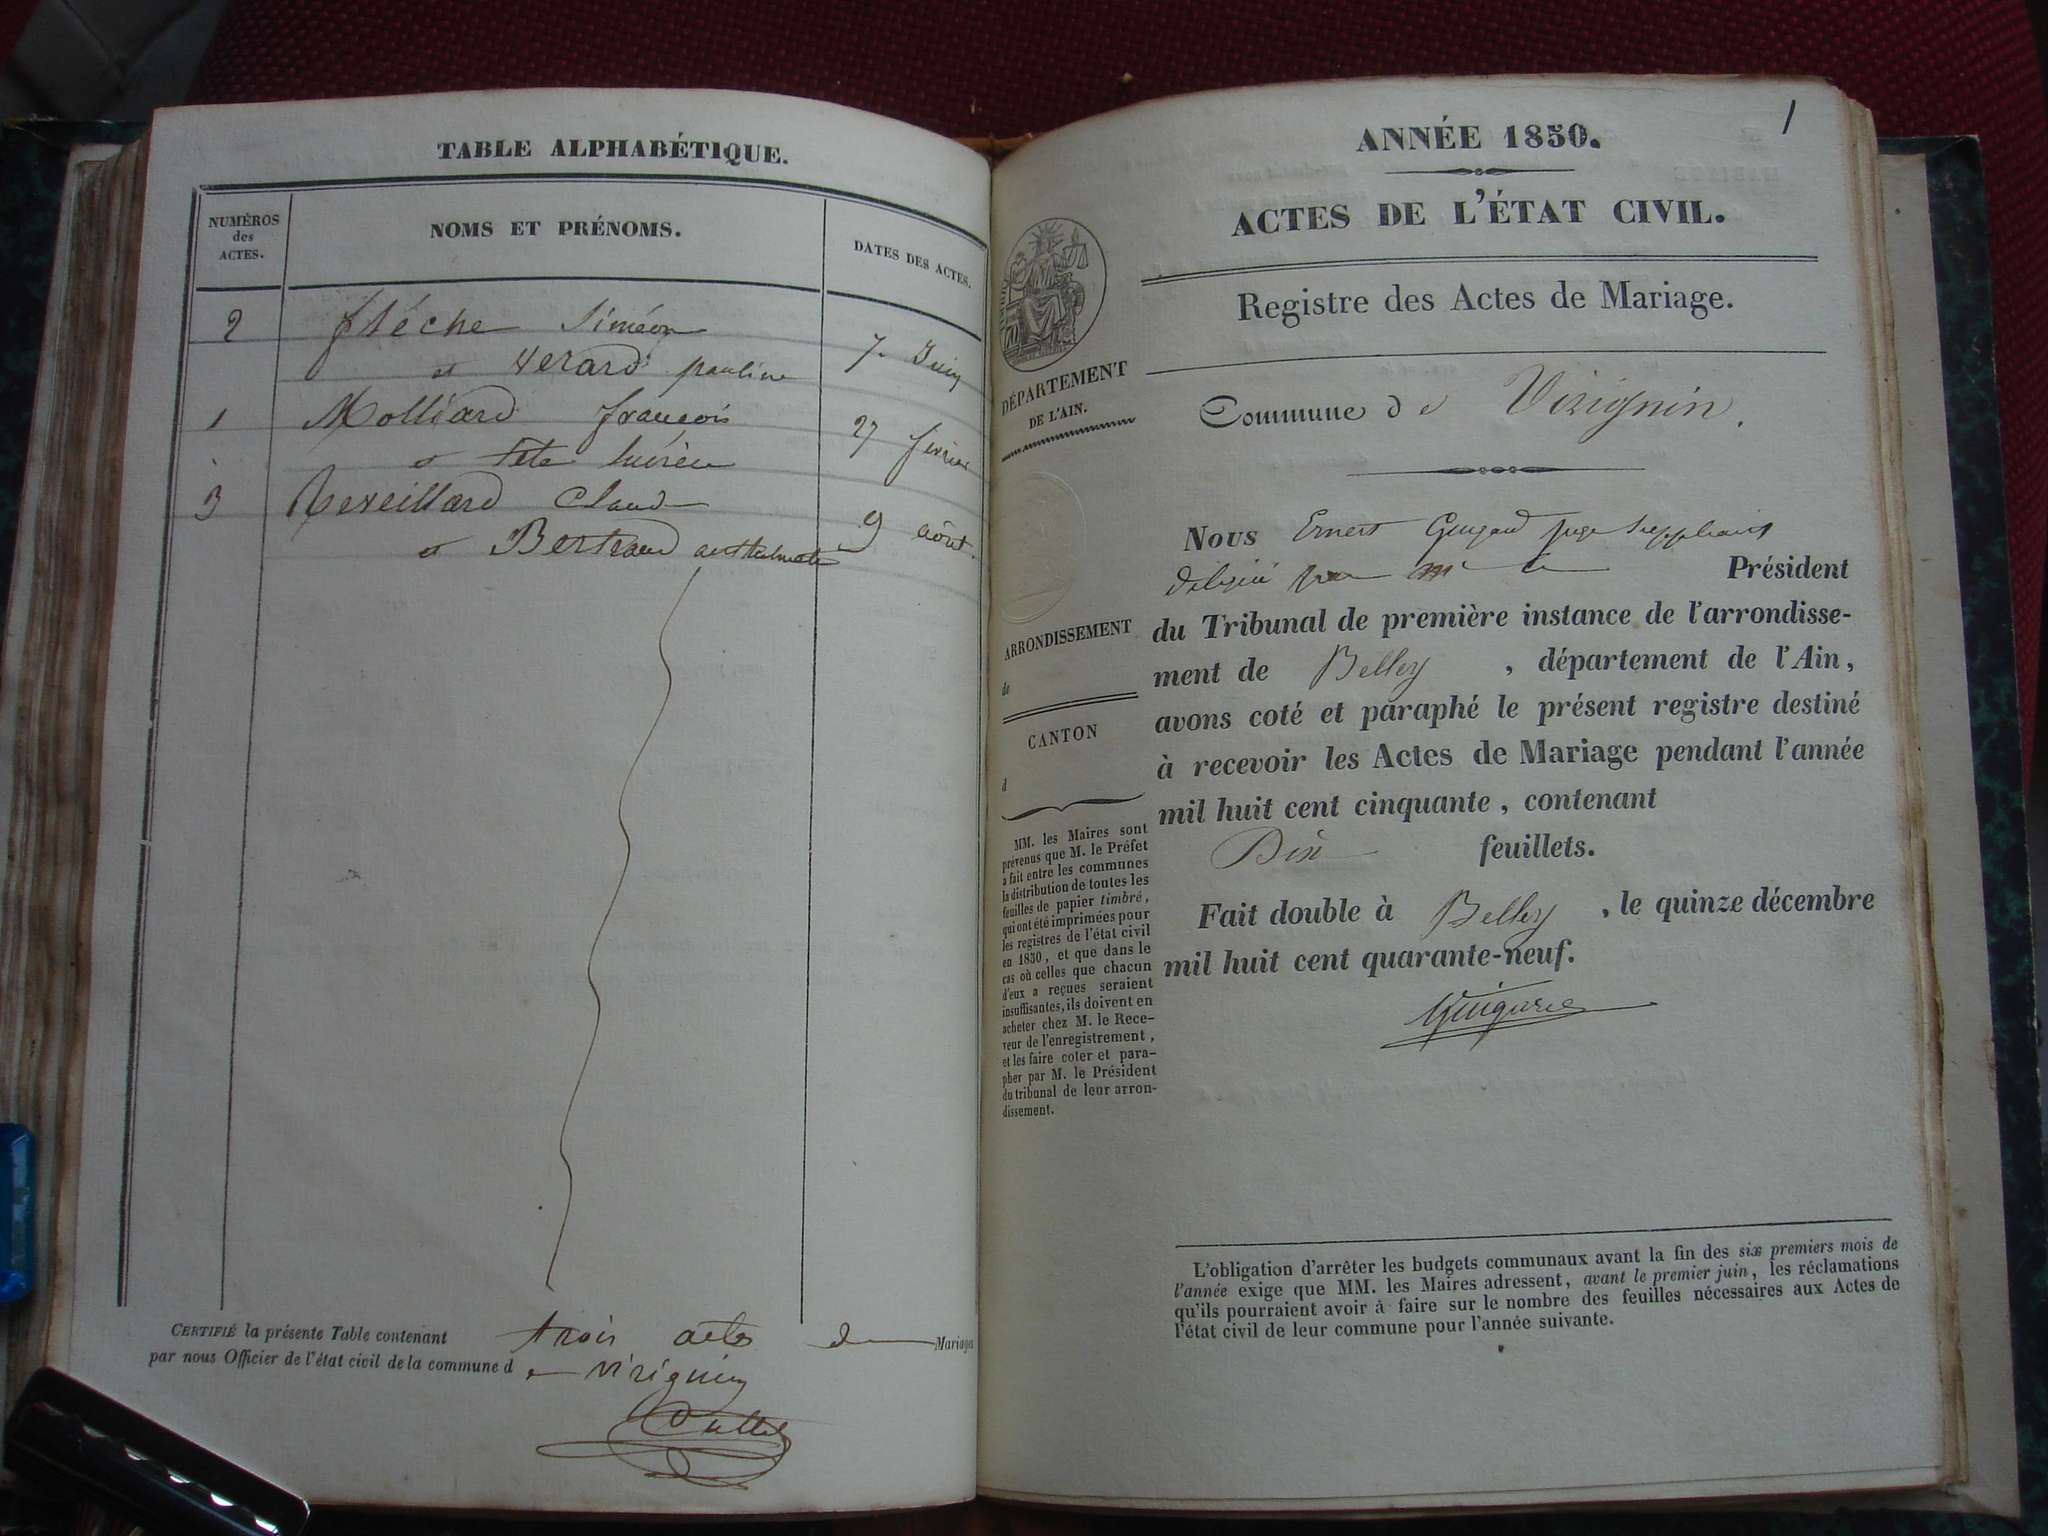 TABLE ALPHABÉTIQUE.
NUMÉROS
des
ACTES.
NOMS ET PRÉNOMS.
DATES DES ACTES.
2 fléche Siméon
et verard pauline 7 Juin
1 Molliard françois
et tete 27 fevrier
3 Reveillard Claud
et Bertrand anthelmette 9 aôut.
CERTIFIÉ la présente Table contenant trois actes de Mariages
par nous Officier de l'état civil de la commune d e virignin
1
ANNÉE 1850.
ACTES DE L'ÉTAT CIVIL.
Registre des Actes de Mariage.
DÉPARTEMENT
DE L'AIN.
Commune d e Virignin.
ARRONDISSEMENT
de
CANTON
d
MM. les Maires sont
prévenus que M. le Préfet
a fait entre les communes
la distribution de toutes les
feuilles de papier timbré,
qui ont été imprimées pour
les registres de l'état civil
en 1850, et que dans le
cas où celles que chacun
d'eux a reçues seraient
insuffisantes, ils doivent en
acheter chez M. le Rece-
veur de l'enregistrement,
et les faire coter et para-
pher par M. le Président
du tribunal de leur arron-
dissement.
Nous Ernest juge Suppléant
délégué par Mr le Président
du Tribunal de première instance de l'arrondisse-
ment de Belley, département de l'Ain,
avons coté et paraphé le présent registre destiné
à recevoir les Actes de Mariage pendant l'année
mil huit cent cinquante, contenant
Dix feuillets.
Fait double à Belley, le quinze décembre
mil huit cent quarante-neuf.
L'obligation d'arrêter les budgets communaux avant la fin des six premiers mois de
l'année exige que MM. les Maires adressent, avant le premier juin, les réclamations
qu'ils pourraient avoir à faire sur le nombre des feuilles nécessaires aux Actes de
l'état civil de leur commune pour l'année suivante.